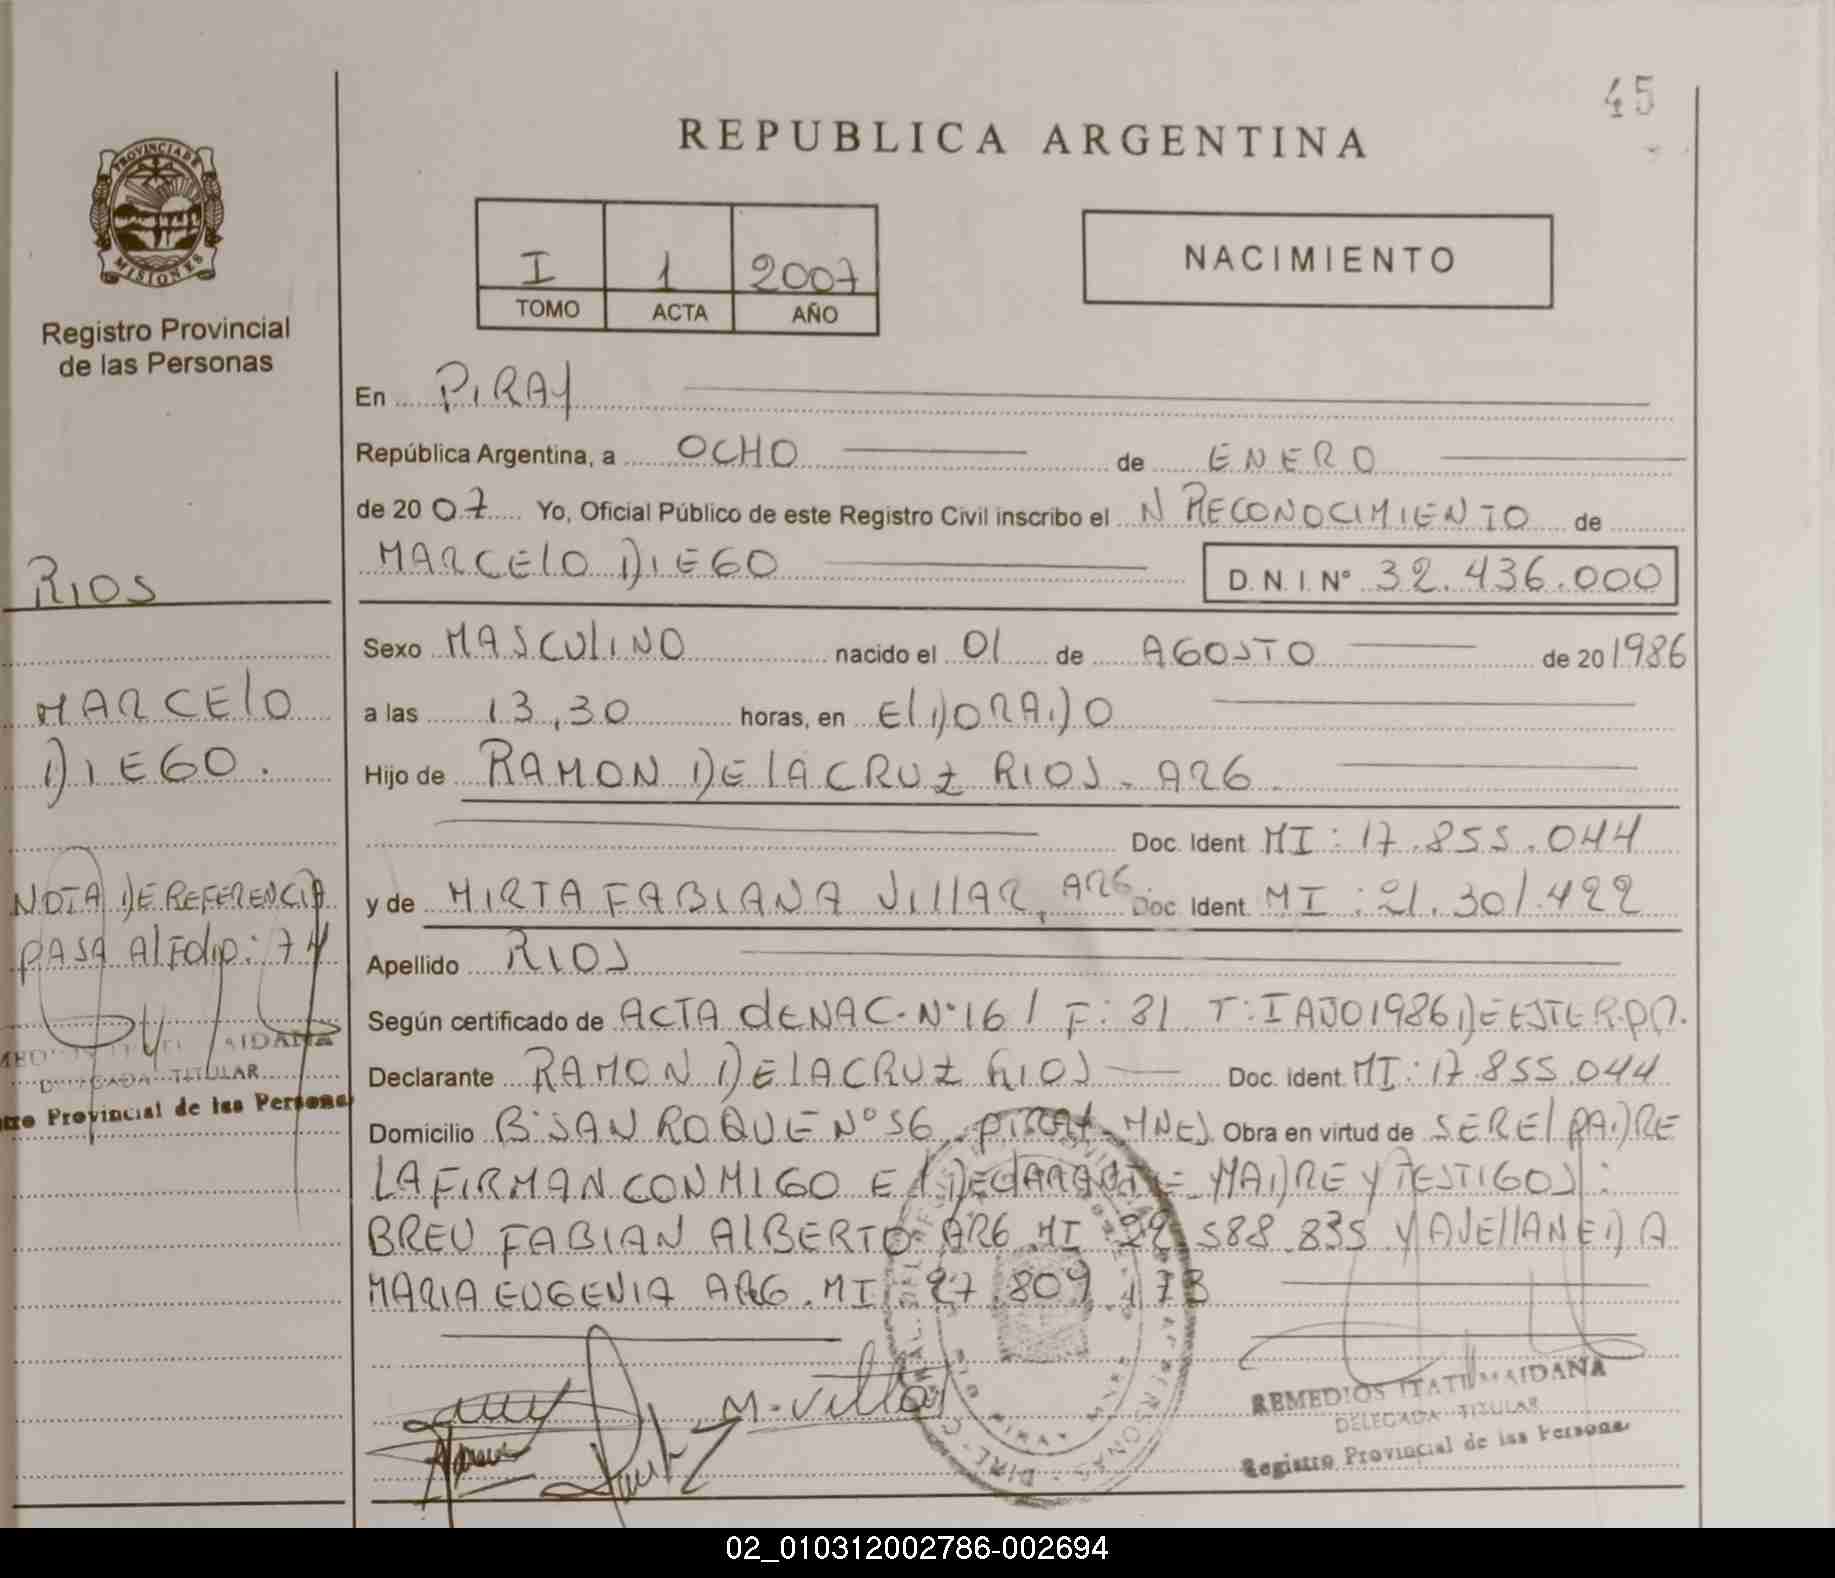 45
REPUBLICA ARGENTINA
PROVINCIA DE
MISIONES
Registro Provincial
de las Personas
I 1 2007
TOMO ACTA AÑO
NACIMIENTO
En PIRAY
República Argentina, a OCHO de ENERO
de 20 07 Yo, Oficial Público de este Registro Civil inscribo el N RECONOCIMIENTO de
MARCELO DIEGO D. N. I. Nº 32.436.000
Sexo MASCULINO nacido el 01 de AGOSTO de 20 1986
a las 13,30 horas, en ELDORADO
Hijo de RAMON DE LA CRUZ RIOS - ARG.
Doc. Ident. MI: 17.855.044
y de MIRTA FABIANA VILLAR, ARG Doc. Ident. MI: 21.301.422
Apellido RIOS
Según certificado de ACTA de NAC. Nº 161 F: 81 T: I AÑO 1986 DE ESTE R.P.P.
Declarante RAMON DE LA CRUZ RIOS Doc. Ident. MI: 17.855.044
Domicilio Bº SAN ROQUE Nº 56. PIRAY - MNES Obra en virtud de SER EL PADRE
LA FIRMAN CONMIGO EL DECLARANTE MADRE Y TESTIGOS:
BREU FABIAN ALBERTO ARG MI 29.588.835 Y AVELLANEDA
MARIA EUGENIA ARG. MI. 27.809.173
M. Villar
REMEDIOS ITATI MAIDANA
DELEGADA TITULAR
Registro Provincial de las Personas
RIOS
MARCELO
DIEGO.
NOTA DE REFERENCIA
PASA AL FOLIO: 74
MAIDANA
DELEGADA TITULAR
Provincial de las Personas
02_010312002786-002694